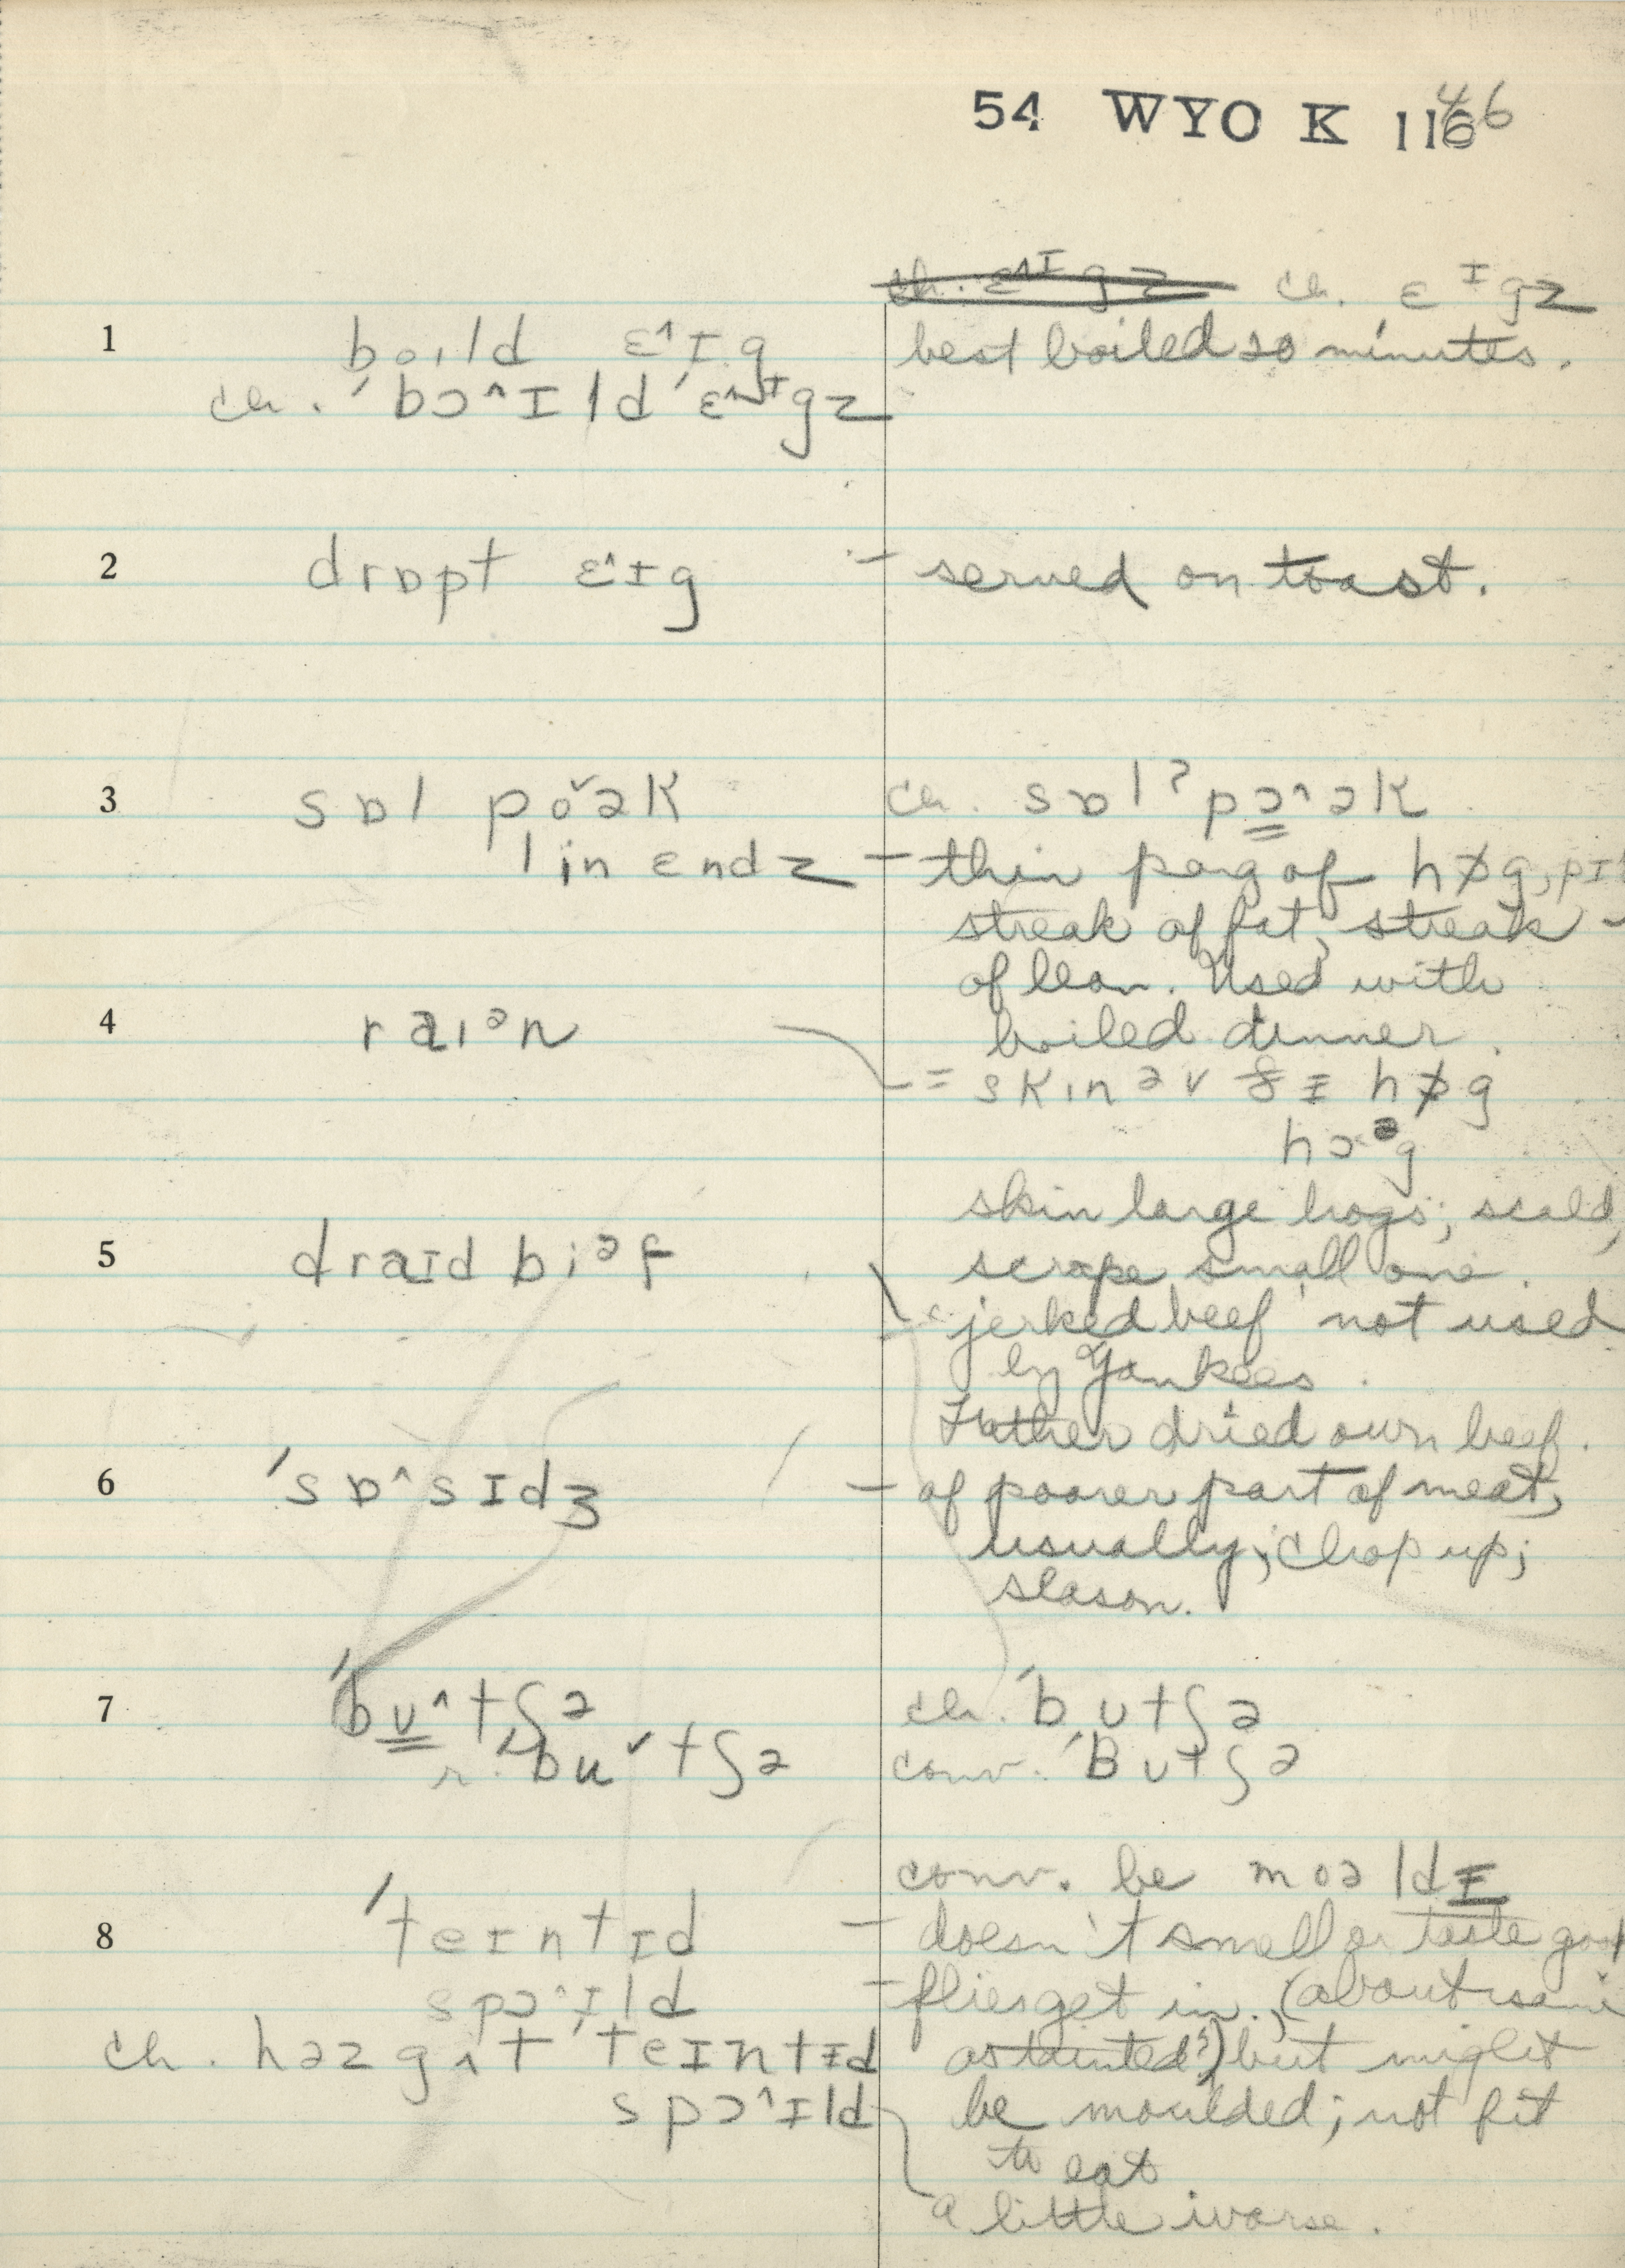 54 WYO K 116 46
ch. ɛ^ɪgz ch. ɛᴵgz
1 bo.ıld ɛ^ɪg best boiled 20 minutes.
ch. ˈbɔ^ɪld ˈɛ^ᴵgz
2 drɒpt ɛ^ɪg – served on toast.
3 sɒl poˇək ch. sɒlˀpɔ^ək
lin ɛndz – thin parg of hɒg, pɪ
streak of fat, streak
of lean. Used with
4 raıᵊn boiled dinner.
= skın əv ðɪ hɒg
hɔᵊg
skin large hogs; scald,
5 draɪd biᵊf scrape small one.
"jerked beef" not used
by Yankees.
Father dried own beef.
6 ˈsɒ^sɪdʒ – of poorer part of meat,
usually; chop up;
season.
7 ˈbʊ^tʃə ch. ˈbʊtʃə
r. ˈbuˇtʃə conv. ˈBʊtʃə
conv. be moəldɪ
8 ˈteɪntɪd – doesn't smell or taste good
spɔ^ɪld – flies get in. (about same
ch. həz gɪt ˈteɪntɪd as tainted?) but might
spɔ^ɪld be moulded; not fit
to eat
a little worse.